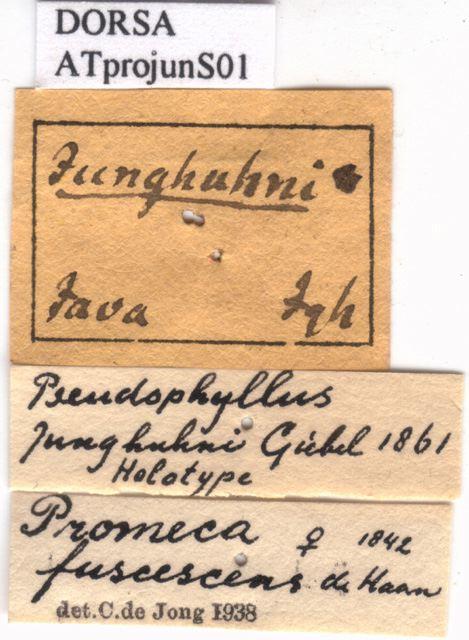 DORSA
ATprojunS01
Junghuhni
Java Jgh
Pseudophyllus
Junghuhni Giebel 1861
Holotype
Promeca ♀ 1842
fuscescens de Haan
det. C. de Jong 1938